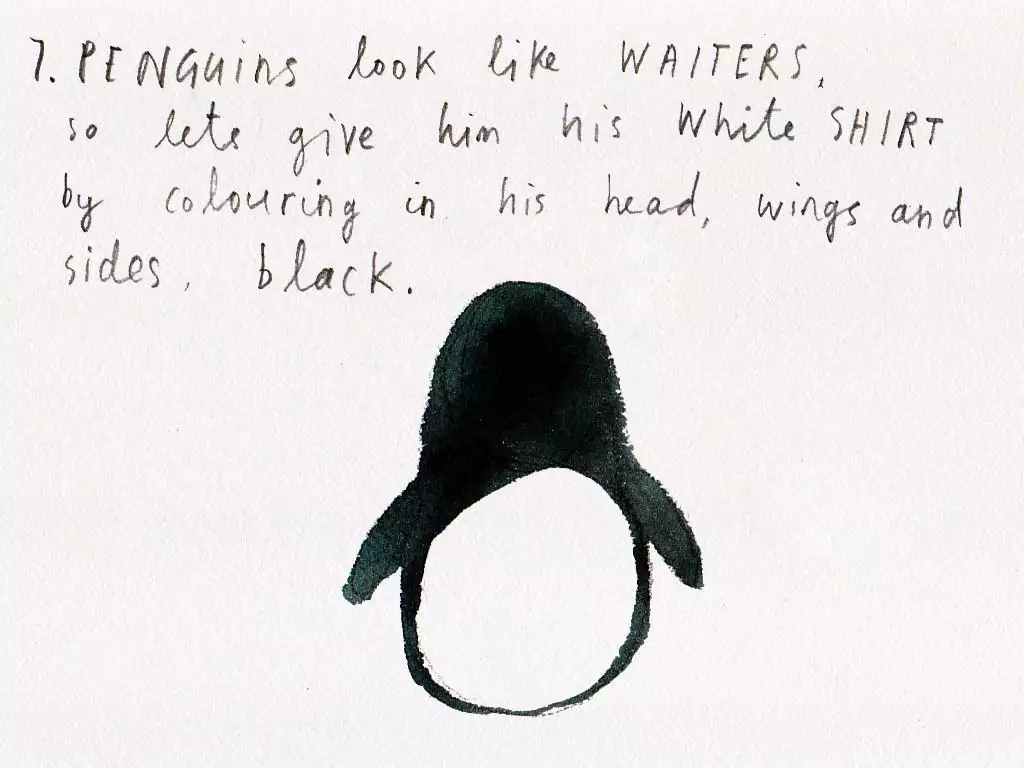 7. PENGUins look like WAITERS,
so lets give him his White SHIRT
by colouring in his head, wings and
sides, black.